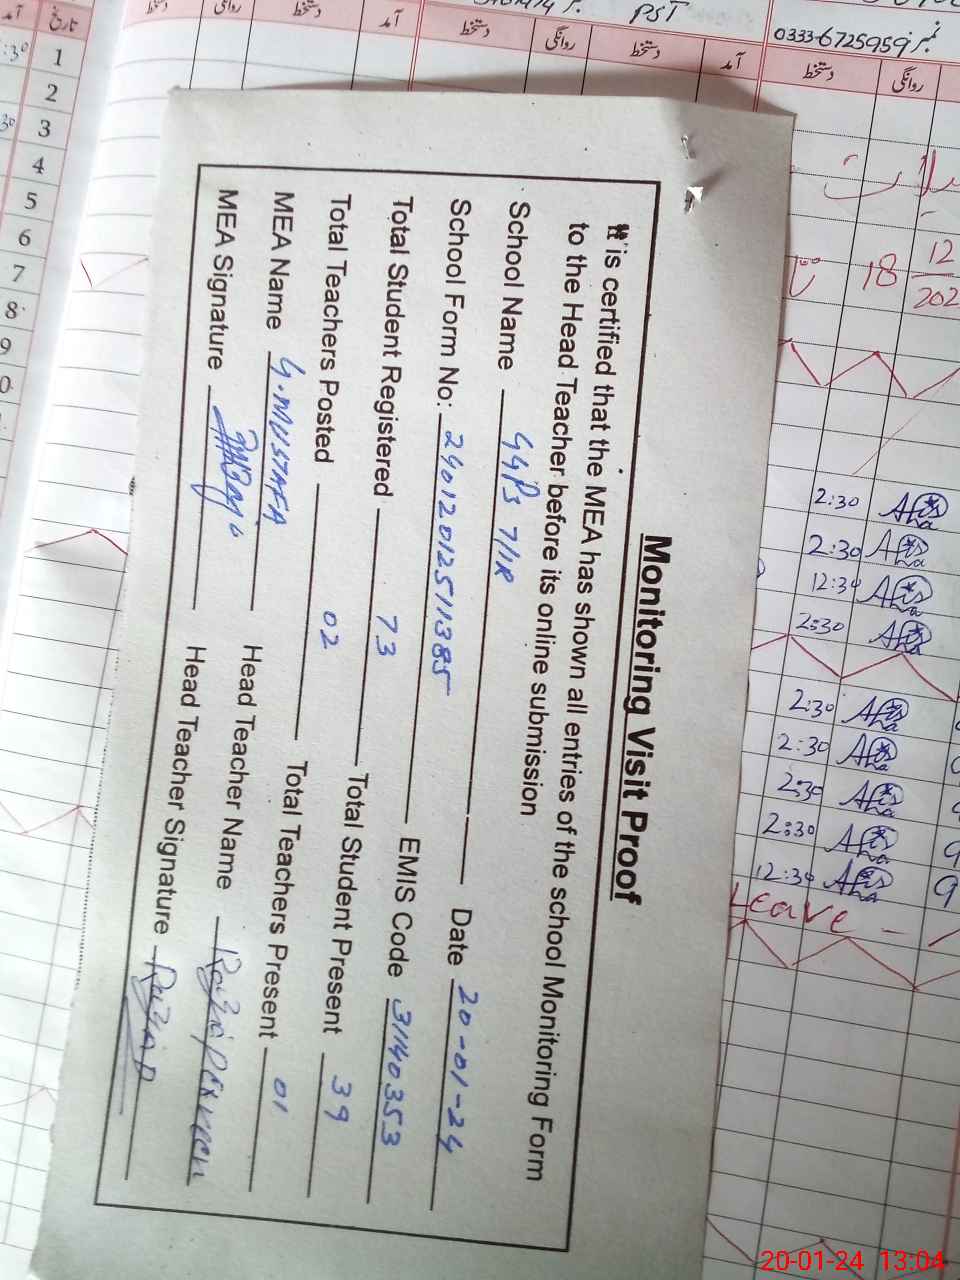 Monitoring Visit Proof
It is certified that the MEA has shown all entries of the school Monitoring Form
to the Head Teacher before its online submission
School Name GGPS 7/1R Date 20-01-24
School Form No: 24012012511385 EMIS Code 31140353
Total Student Registered 73 Total Student Present 39
Total Teachers Posted 02 Total Teachers Present 01
MEA Name G.MUSTAFA Head Teacher Name Razia Perveen
MEA Signature Head Teacher Signature Razia P
PST
نمبر 0333-6725959
تاریخ آمد دستخط روانگی دستخط آمد دستخط روانگی دستخط آمد دستخط روانگی
1
2
3
4
5
6
7
8
9
18 12
202
2:30
2:30
12:30
2:30
2:30
2:30
2:30
2:30
12:30
Leave -
20-01-24 13:04